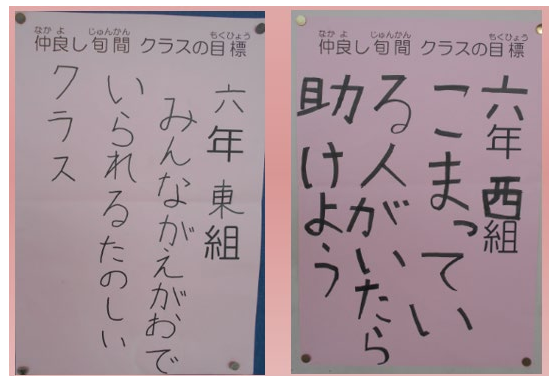 なか よ じゅんかん もくひょう
仲良し旬間 クラスの目標
六年 東組
みんながえがおで
いられるたのしい
クラス
なか よ じゅんかん もくひょう
仲良し旬間 クラスの目標
六年 西組
こまってい
る人がいたら
助けよう